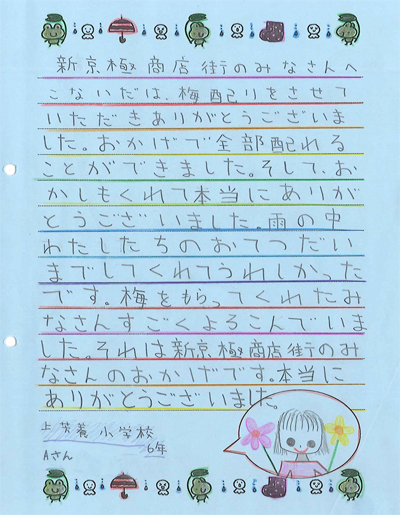 新京極商店街のみなさんへ
こないだは、梅配りをさせて
いただきありがとうございま
した。おかげで全部配れる
ことができました。そして、お
かしもくれて本当にありが
とうございました。雨の中
わたしたちのおてつだい
までしてくれてうれしかった
です。梅をもらってくれたみ
なさんすごくよろこんでいま
した。それは新京極商店街のみ
なさんのおかげです。本当に
ありがとうございました。
上茨養小学校
6年
Aさん